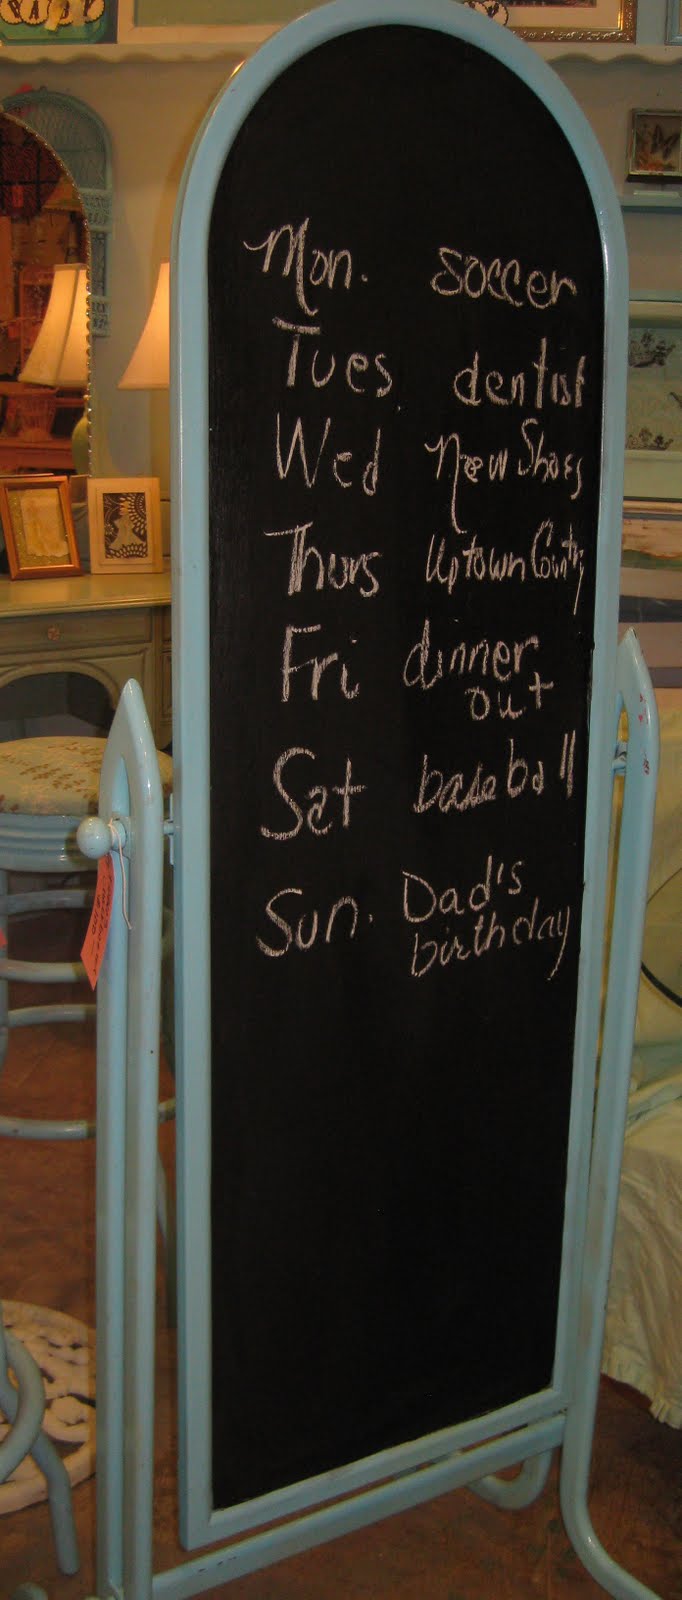 Mon. soccer
Tues dentist
Wed New Shoes
Thurs Uptown Country
Fri dinner
out
Sat baseball
Sun. Dad's
birthday